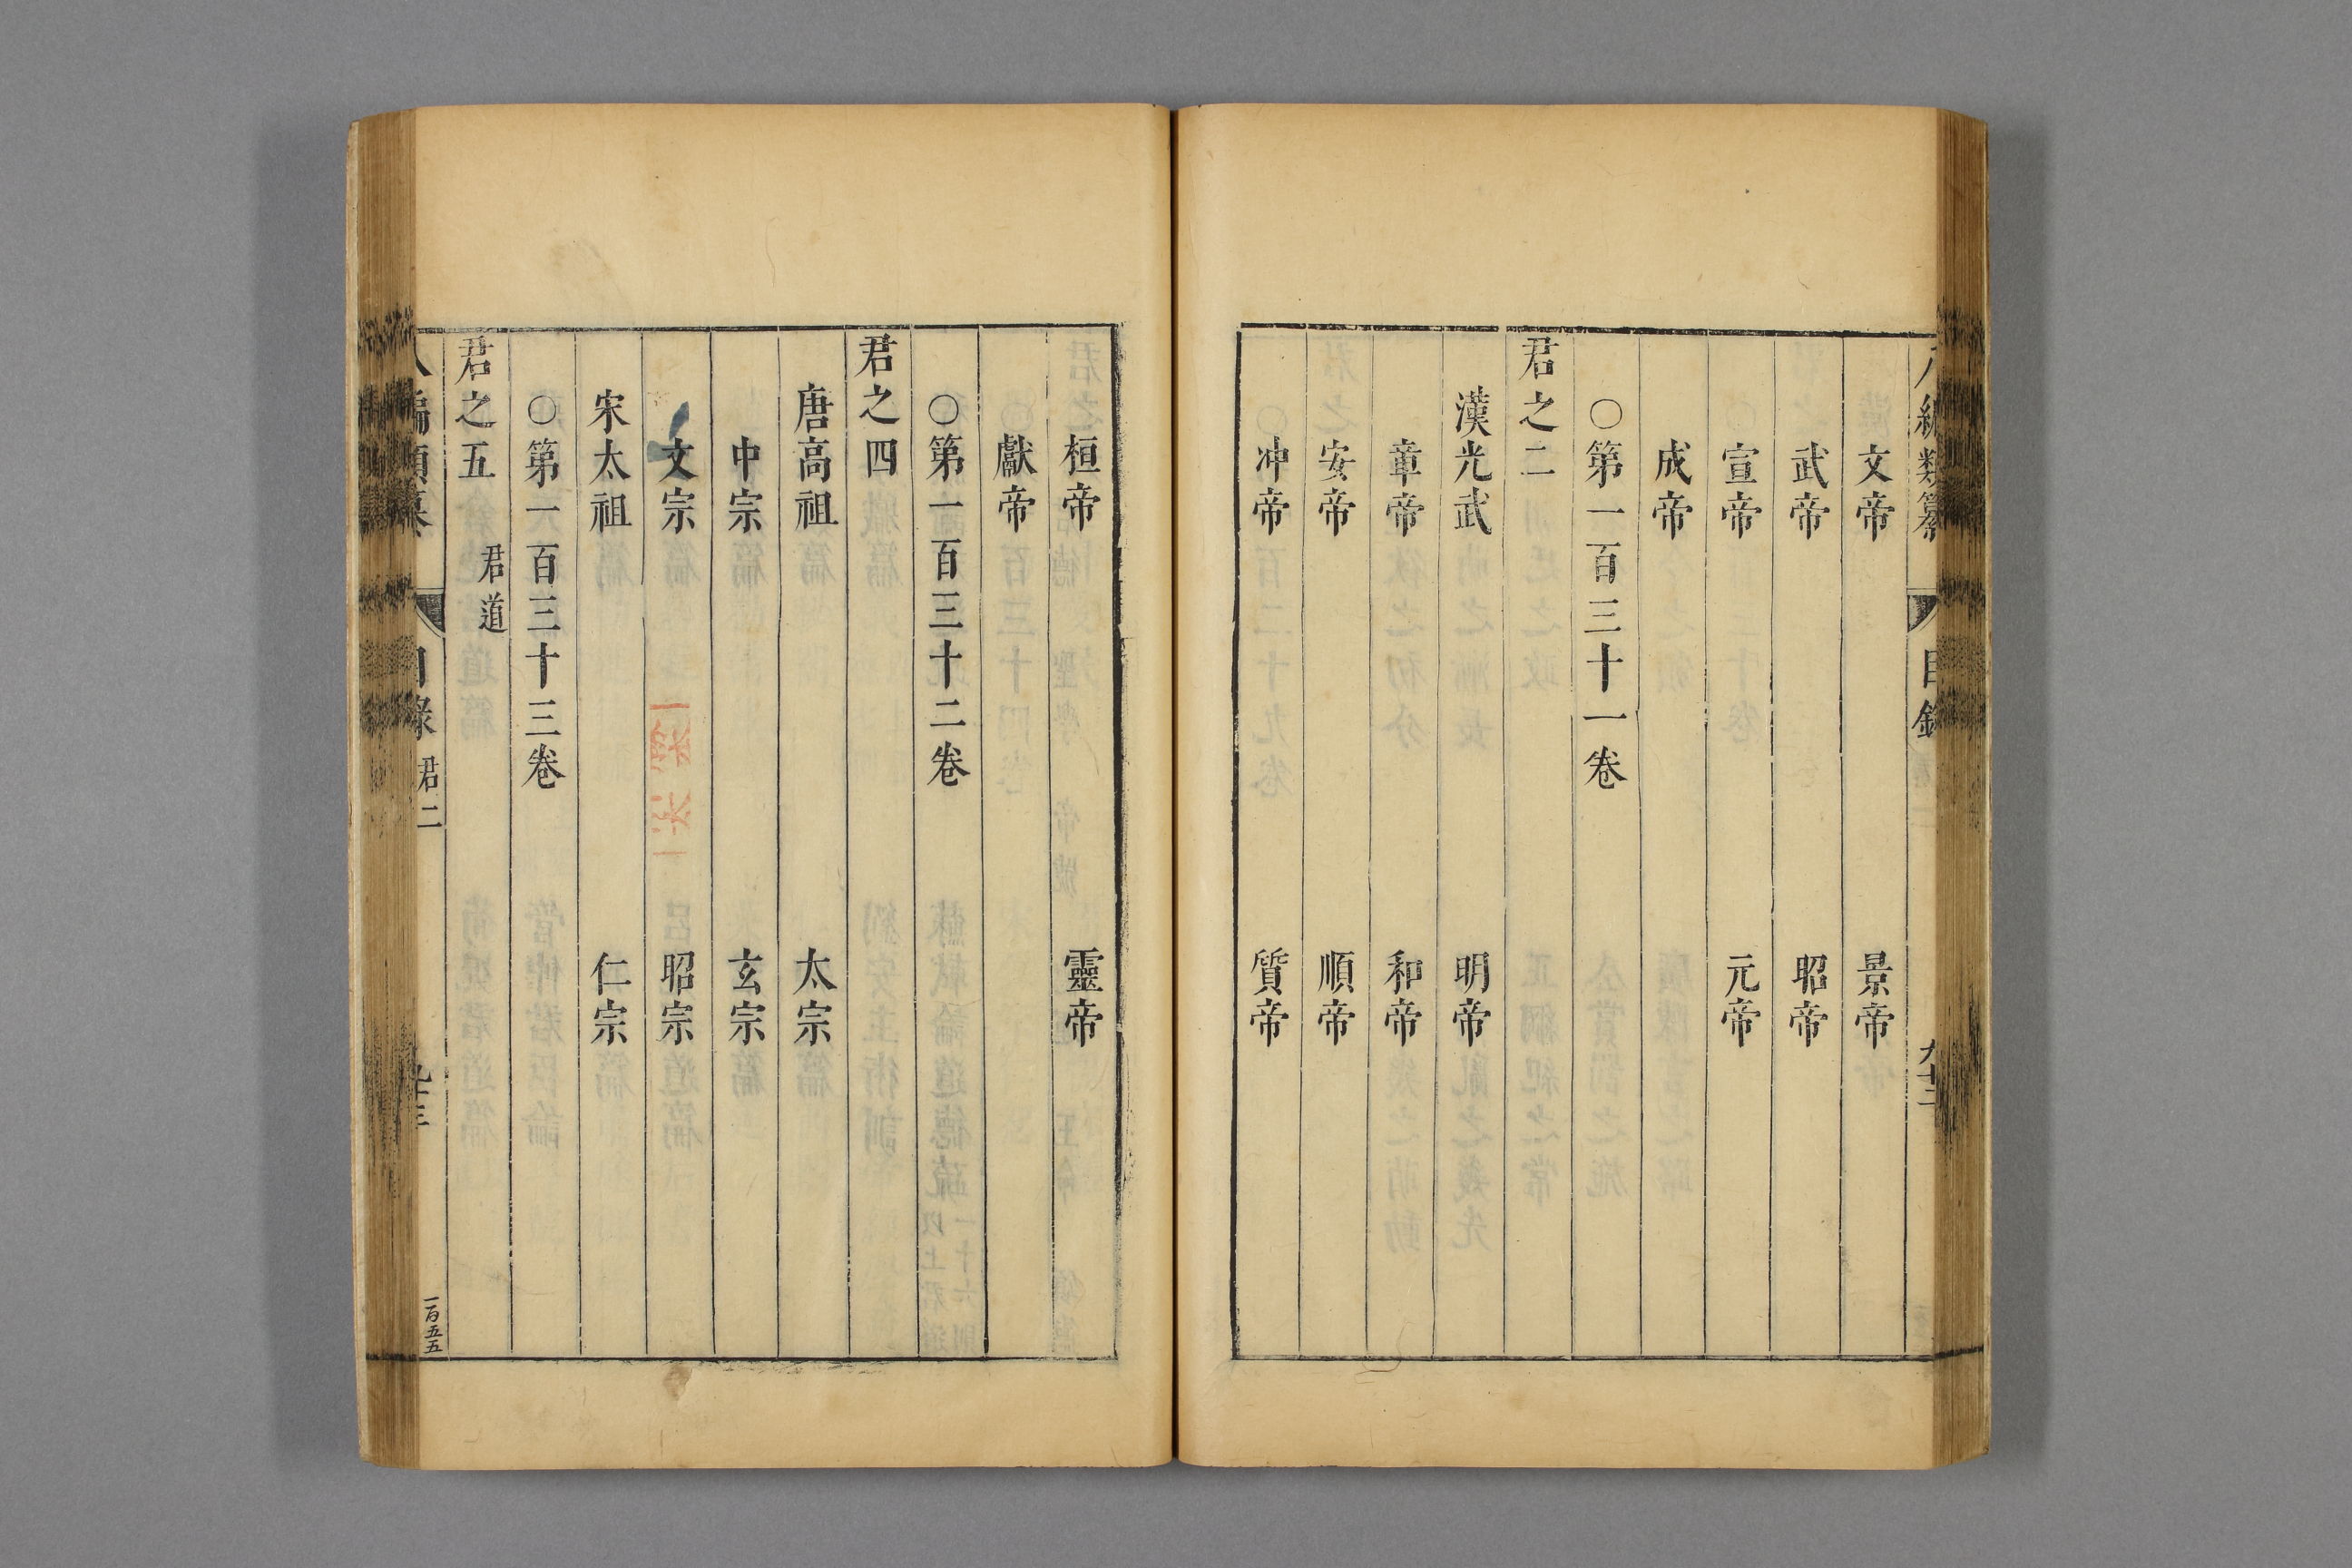 八編類纂　目錄　九十二
文帝　景帝
武帝　昭帝
宣帝　元帝
成帝
○第一百三十一卷
君之二
漢光武　明帝
章帝　和帝
安帝　順帝
冲帝　質帝
桓帝　靈帝
獻帝
○第一百三十二卷
君之四
唐高祖　太宗
中宗　玄宗
文宗　昭宗
宋太祖　仁宗
○第一百三十三卷
君之五　君道
八編類纂　目錄　君二
一百五五